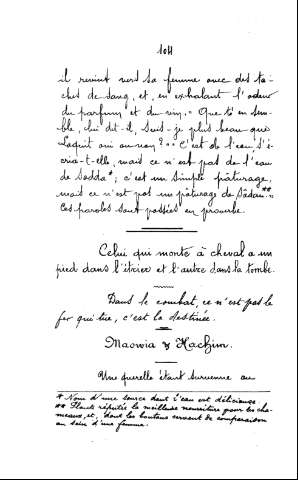 104
il revint vers sa femme avec des ta-
ches de sang, et, en exhalant l'odeur
du parfum et du vin. « Que t'en sem-
ble, lui dit-il, suis-je plus beau que
Laquit oui ou non? » « C'est de l'eau, s'é-
cria-t-elle, mais ce n'est pas de l'eau
de Sodda*; c'est un simple pâturage,
mais ce n'est pas un pâturage de Sâdan**. »
Ces paroles sont passées en proverbe.
Celui qui monte à cheval a un
pied dans l'étrier et l'autre dans la tombe.
Dans le combat, ce n'est pas le
fer qui tue, c'est la destinée.
Maowia & Hachim.
Une querelle étant survenue au
* Nom d'une source dont l'eau est délicieuse.
** Plante réputée la meilleure nourriture pour les cha-
meaux, et, dont les boutons servent de comparaison
au sein d'une femme.